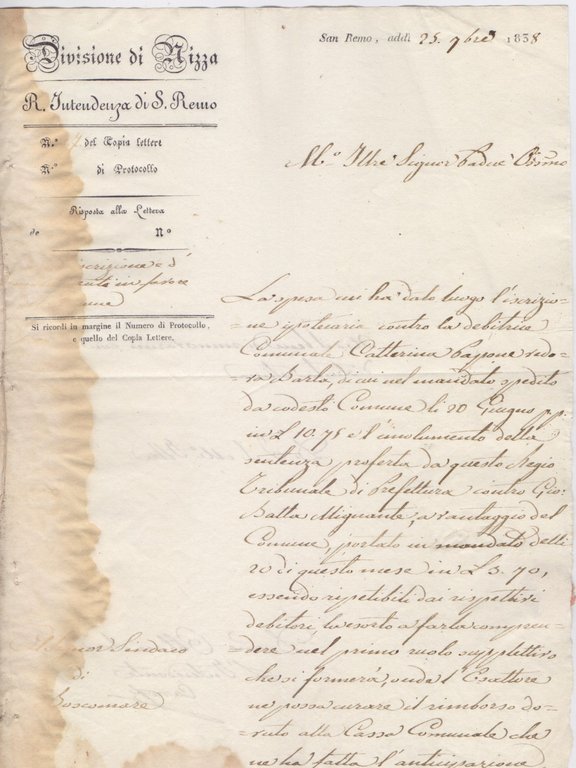 Divisione di Nizza
R. Intendenza di S. Remo
N.º del Copia lettere
N.º di Protocollo
Risposta alla Lettera
de Nº
scrizione e d'
in favore
Si ricordi in margine il Numero di Protocollo,
e quello del Copia Lettere.
San Remo, addì 25. 9bre 1838
M.º Illre Signor Padne Ossmo
La spesa cui ha dato luogo l'iscrizio-
ne ipotecaria contro la debitrice
Comunale Catterina Papone vedo-
va Barla, di cui nel mandato spedito
da codesto Comune li 20 Giugno pp.
in £ 10.75 e l'emolumento della
sentenza proferta da questo Regio
Tribunale di Prefettura contro Gio.
Batta Mignante, a vantaggio del
Comune, portato in mandato delli
20 di questo mese in £ 3.70,
essendo ripetibili dai rispettivi
debitori la esorto a farla compren-
dere nel primo ruolo suppletivo
che si formerà, onde l'Esattore
ne possa curare il rimborso do-
vuto alla Cassa Comunale che
ne ha fatta l'anticipazione
Sindaco
di
Boscomare